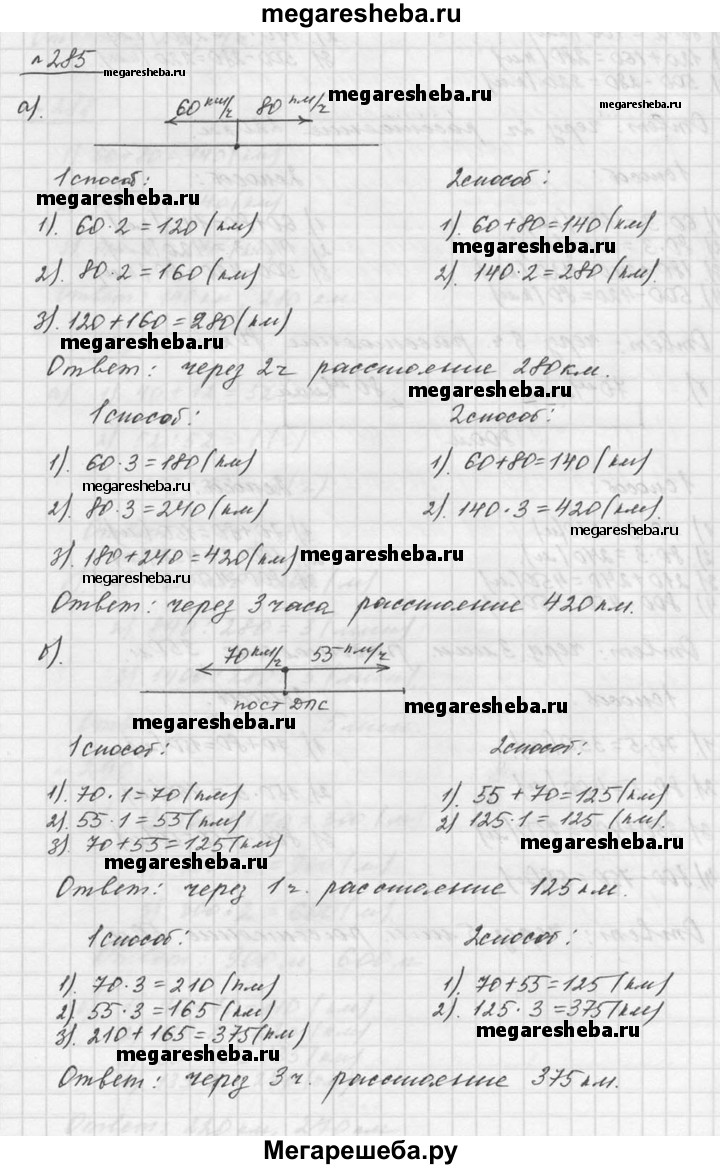 megaresheba.ru
№285
megaresheba.ru
а). 60 км/ч 80 км/ч megaresheba.ru megaresheba.ru
1 способ: 2 способ:
megaresheba.ru
1). 60·2=120(км) 1). 60+80=140(км)
megaresheba.ru
2). 80·2=160(км) 2). 140·2=280(км).
3). 120+160=280(км)
megaresheba.ru
Ответ: через 2ч расстояние 280км.
megaresheba.ru
1 способ: 2 способ:
1). 60·3=180(км) 1). 60+80=140(км)
megaresheba.ru
2). 80·3=240(км) 2). 140·3=420(км)
megaresheba.ru
3). 180+240=420(км) megaresheba.ru
megaresheba.ru
Ответ: через 3 часа расстояние 420км.
б). 70 км/ч 55 км/ч
пост ДПС megaresheba.ru
megaresheba.ru
1 способ: 2 способ:
1). 70·1=70(км) 1). 55+70=125(км)
2). 55·1=55(км) 2) 125·1=125(км).
3). 70+55=125(км) megaresheba.ru
megaresheba.ru
Ответ: через 1ч. расстояние 125км.
1 способ: 2 способ:
1). 70·3=210(км) 1). 70+55=125(км)
2). 55·3=165(км) 2). 125·3=375(км)
3). 210+165=375(км) megaresheba.ru
megaresheba.ru
Ответ: через 3ч. расстояние 375км.
Мегарешеба.ру